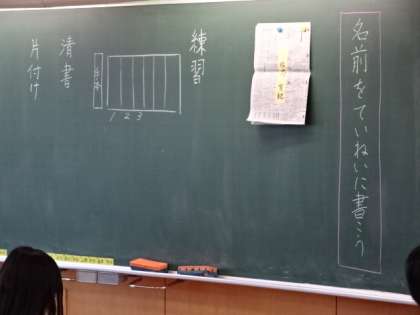 名前をていねいに書こう
練習
手本
1 2 3
清書
片付け